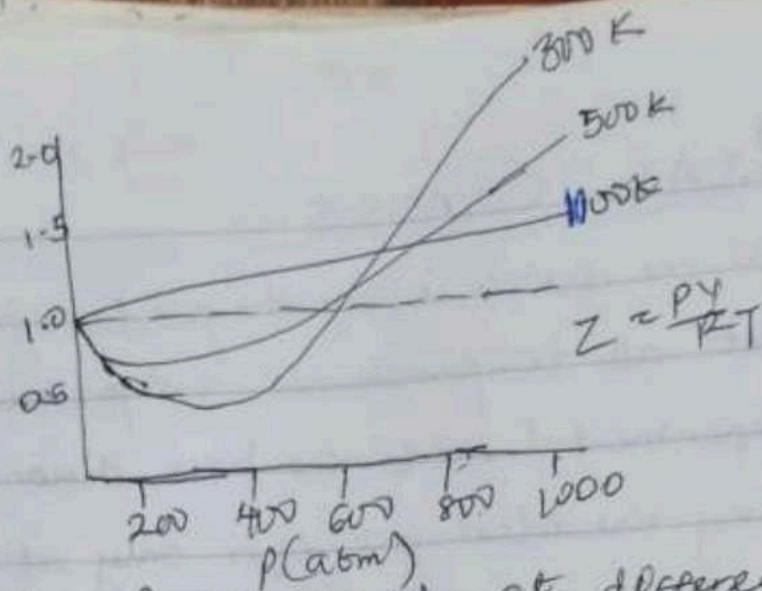 300 K
500 K
1000K
2.0
1.5
1.0
0.5
Z = PV/RT
200 400 600 800 1000
P(atm)
of different